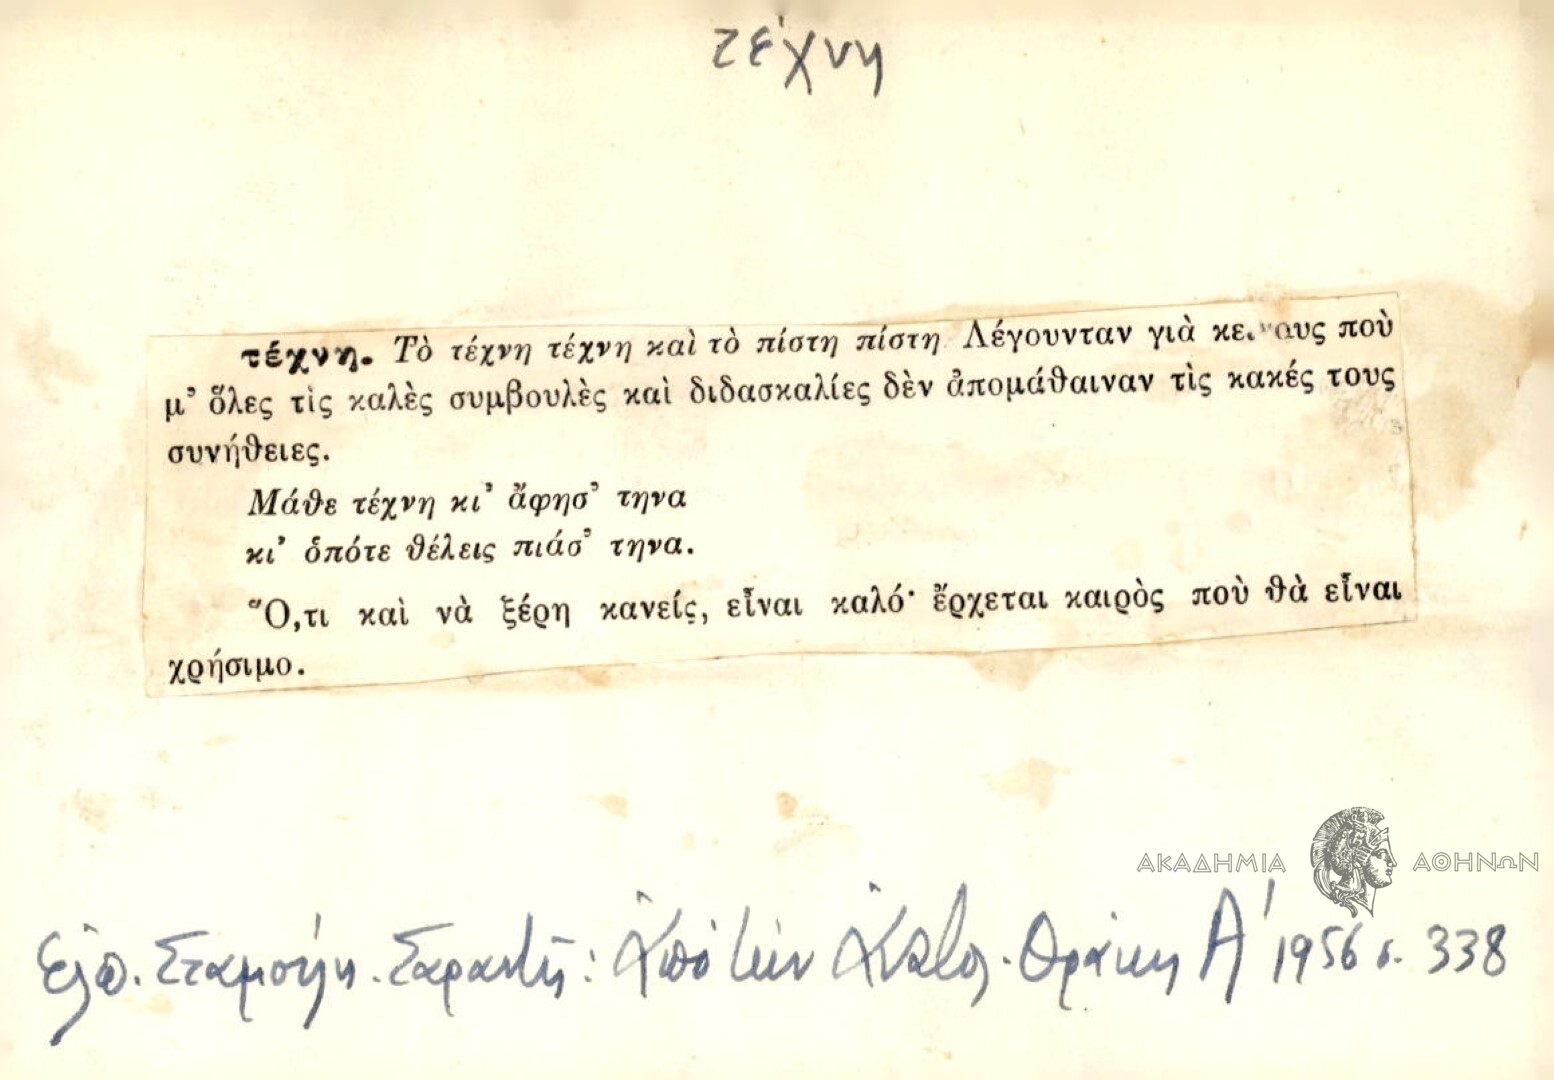 τέχνη
τέχνη. Τὸ τέχνη τέχνη καὶ τὸ πίστη πίστη Λέγουνταν γιὰ πού
μ' ὅλες τὶς καλὲς συμβουλὲς καὶ διδασκαλίες δὲν ἀπομάθαιναν τὶς κακές τους
συνήθειες.
Μάθε τέχνη κι' ἄφησ' τηνα
κι' ὁπότε θέλεις πιάσ' τηνα.
Ὅ,τι καὶ νὰ ξέρη κανείς, εἶναι καλό· ἔρχεται καιρὸς ποὺ θὰ εἶναι
χρήσιμο.
ΑΚΑΔΗΜΙΑ ΑΘΗΝΩΝ
Ἐλπ. Σταμούλη - Σαραντῆ: Ἀπὸ τὴν Ἀνατολ. Θράκη Α' 1956 σ. 338